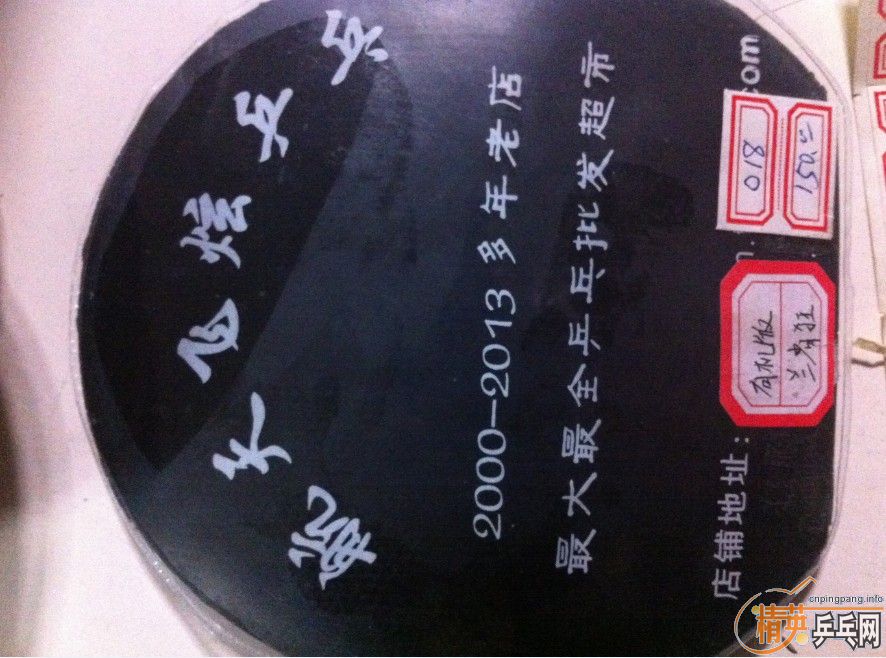 乒乓
2000-2013 多年老店
最大最全乒乓批发超市
店铺地址:
.com
018
有机板
cnpingpang.info
精英乒乓网